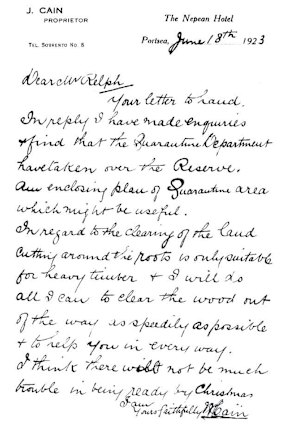 J. CAIN
PROPRIETOR
TEL. SORRENTO NO. 8
The Nepean Hotel
Portsea, June 18th 1923
Dear Mr Relph
Your letter to hand.
In reply I have made enquiries
& find that the Quarantine Department
have taken over the Reserve.
Am enclosing plan of Quarantine area
which might be useful.
In regard to the clearing of the land
Cutting around the roots is only suitable
for heavy timber & I will do
all I can to clear the wood out
of the way as speedily as possible
& to help you in every way.
I think there will not be much
trouble in being ready by Christmas
I am
Yours faithfully JCain